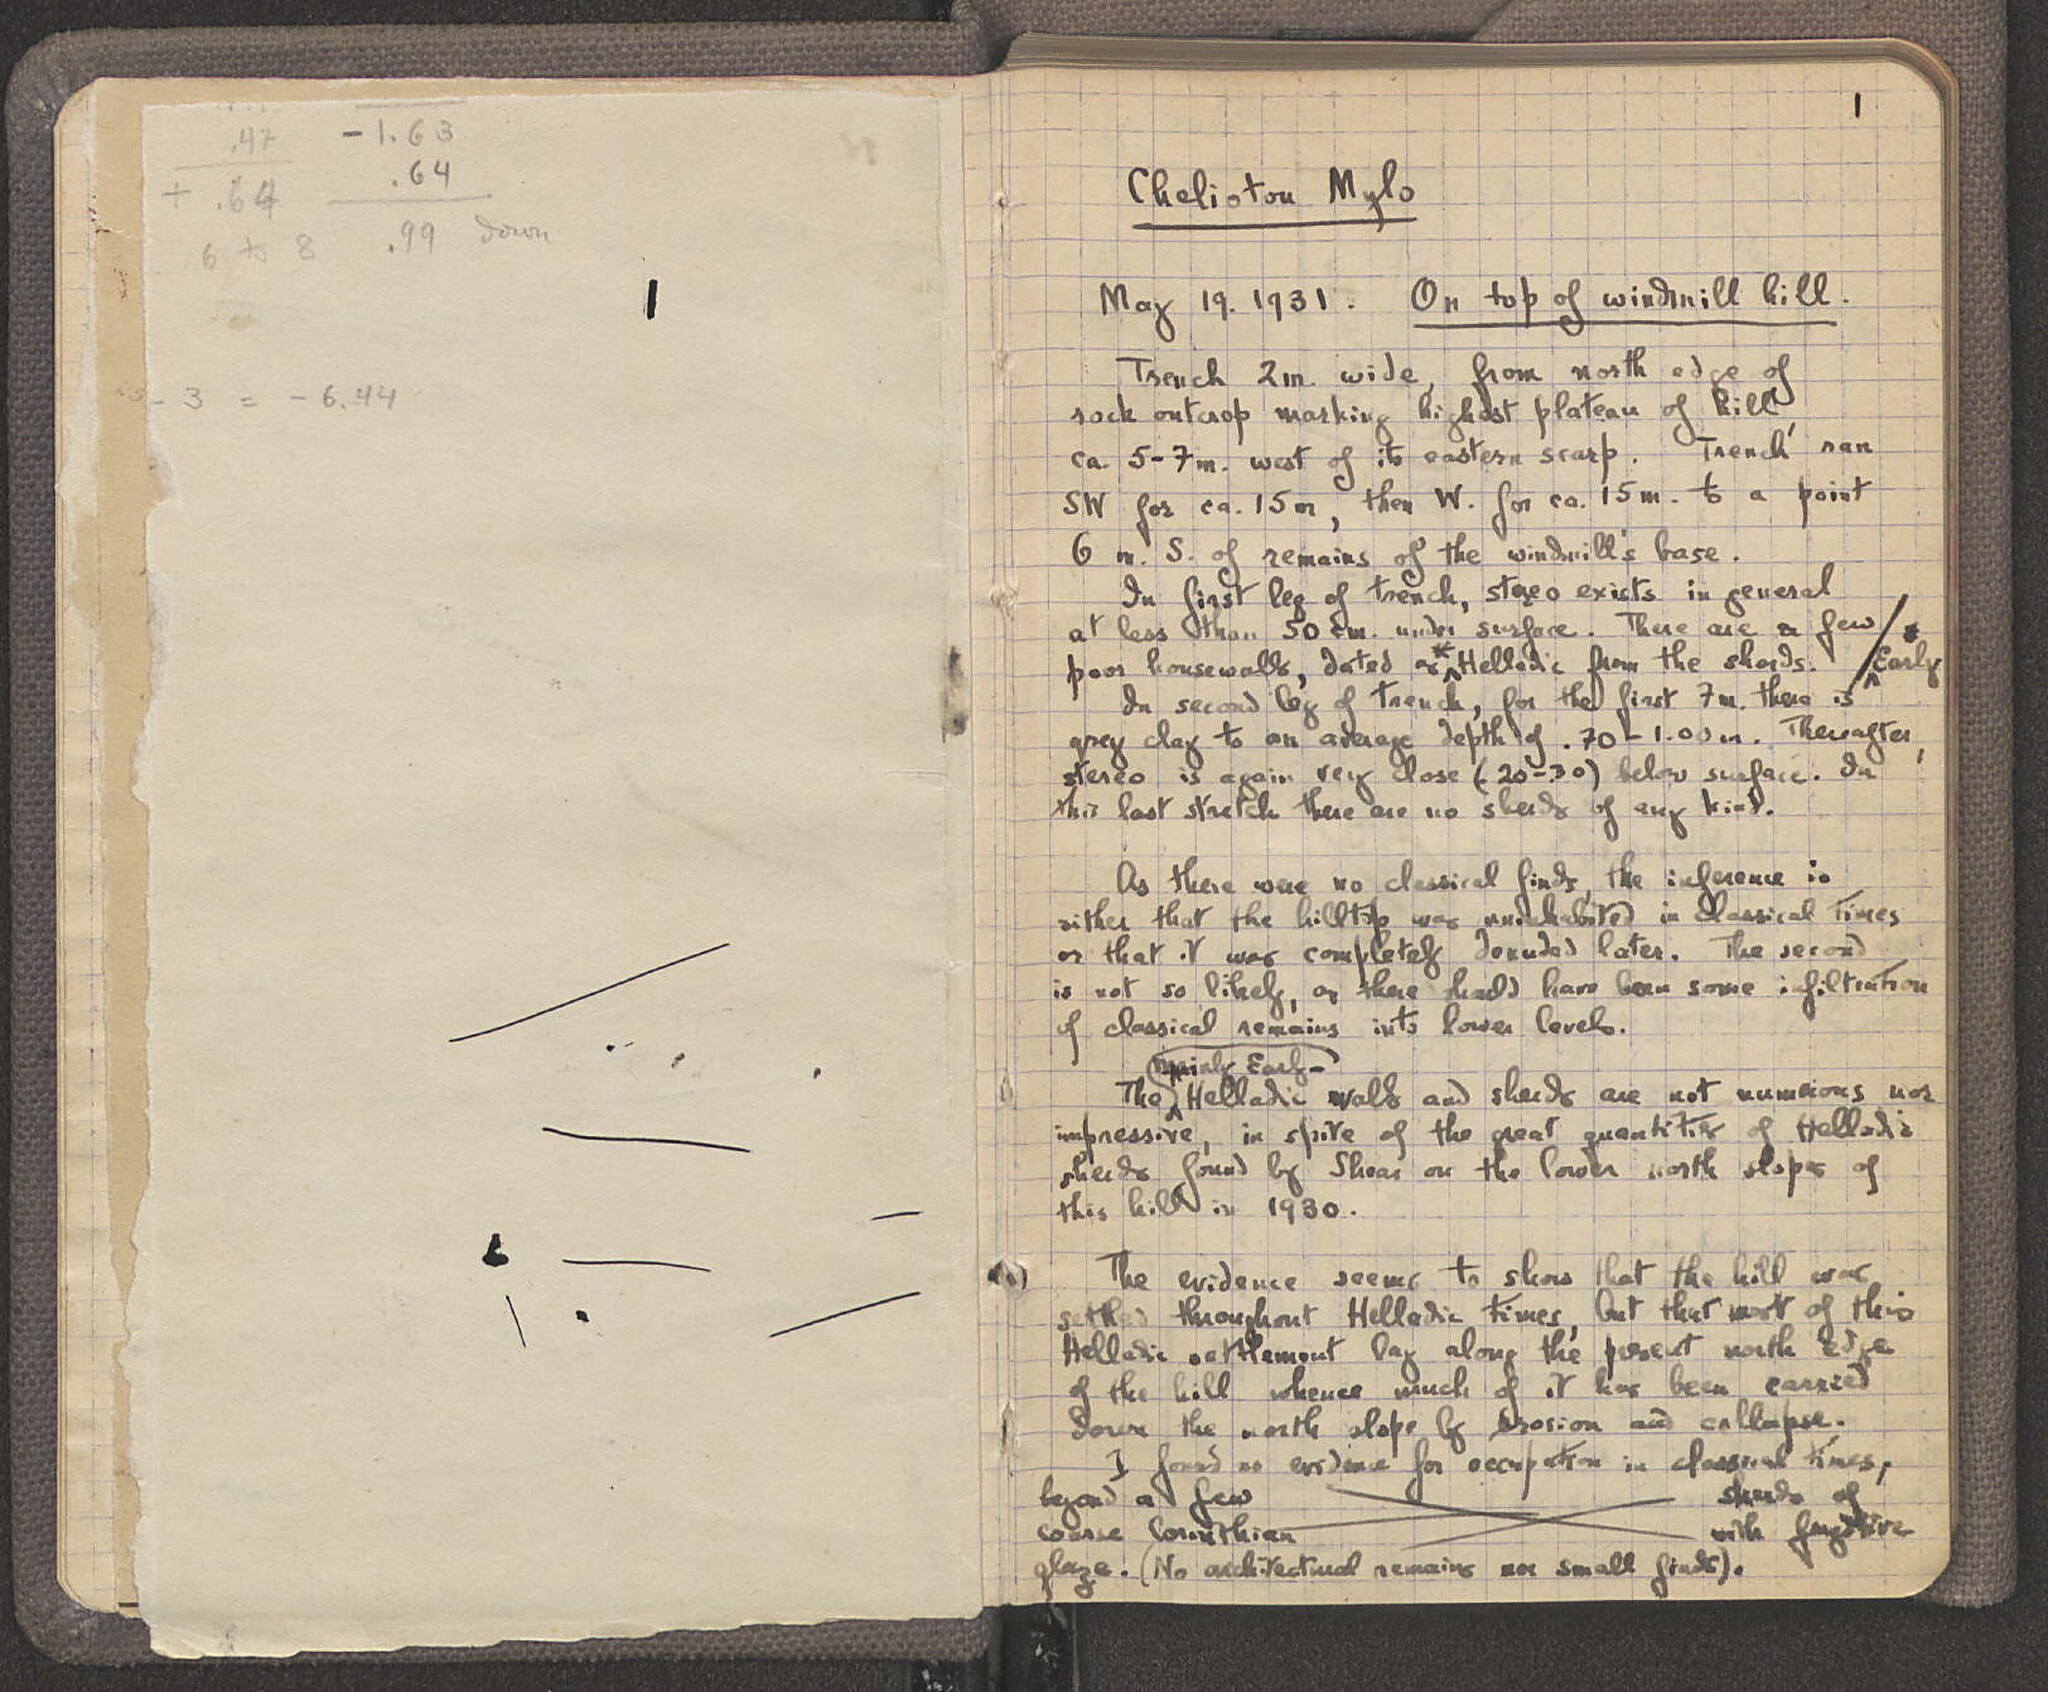 .47
+ .64
6 to 8
- 1.63
.64
.99 down
1
- 3 = - 6.44
1
Cheliotou Mylo
May 19. 1931. On top of windmill hill.
Trench 2m. wide, from north edge of
rock outcrop marking highest plateau of hill,
ca. 5-7m. west of its eastern scarp. Trench ran
SW for ca. 15m, then W. for ca. 15m. to a point
6 m. S. of remains of the windmill's base.
In first leg of trench, stereo exists in general
at less than 50 cm. under surface. There are a few
poor housewalls, dated as * Helladic from the sherds. / * Early
In second leg of trench, for the first 7m. there is
grey clay to an average depth of .70 - 1.00 m. Thereafter,
stereo is again very close (.20-.30) below surface. In
this last stretch there are no sherds of any kind.
As there were no classical finds, the inference is
either that the hilltop was uninhabited in classical times
or that it was completely denuded later. The second
is not so likely, as there should have been some infiltration
of classical remains into lower levels.
mainly Early-
The Helladic walls and sherds are not numerous nor
impressive, in spite of the great quantities of Helladic
sherds found by Shear on the lower north slopes of
this hill in 1930.
The evidence seems to show that the hill was
settled throughout Helladic times, but that most of this
Helladic settlement lay along the present north edge
of the hill whence much of it has been carried
down the north slope by erosion and collapse.
I found no evidence for occupation in classical times,
beyond a few sherds of
coarse Corinthian with fugitive
glaze. (No architectural remains nor small finds).